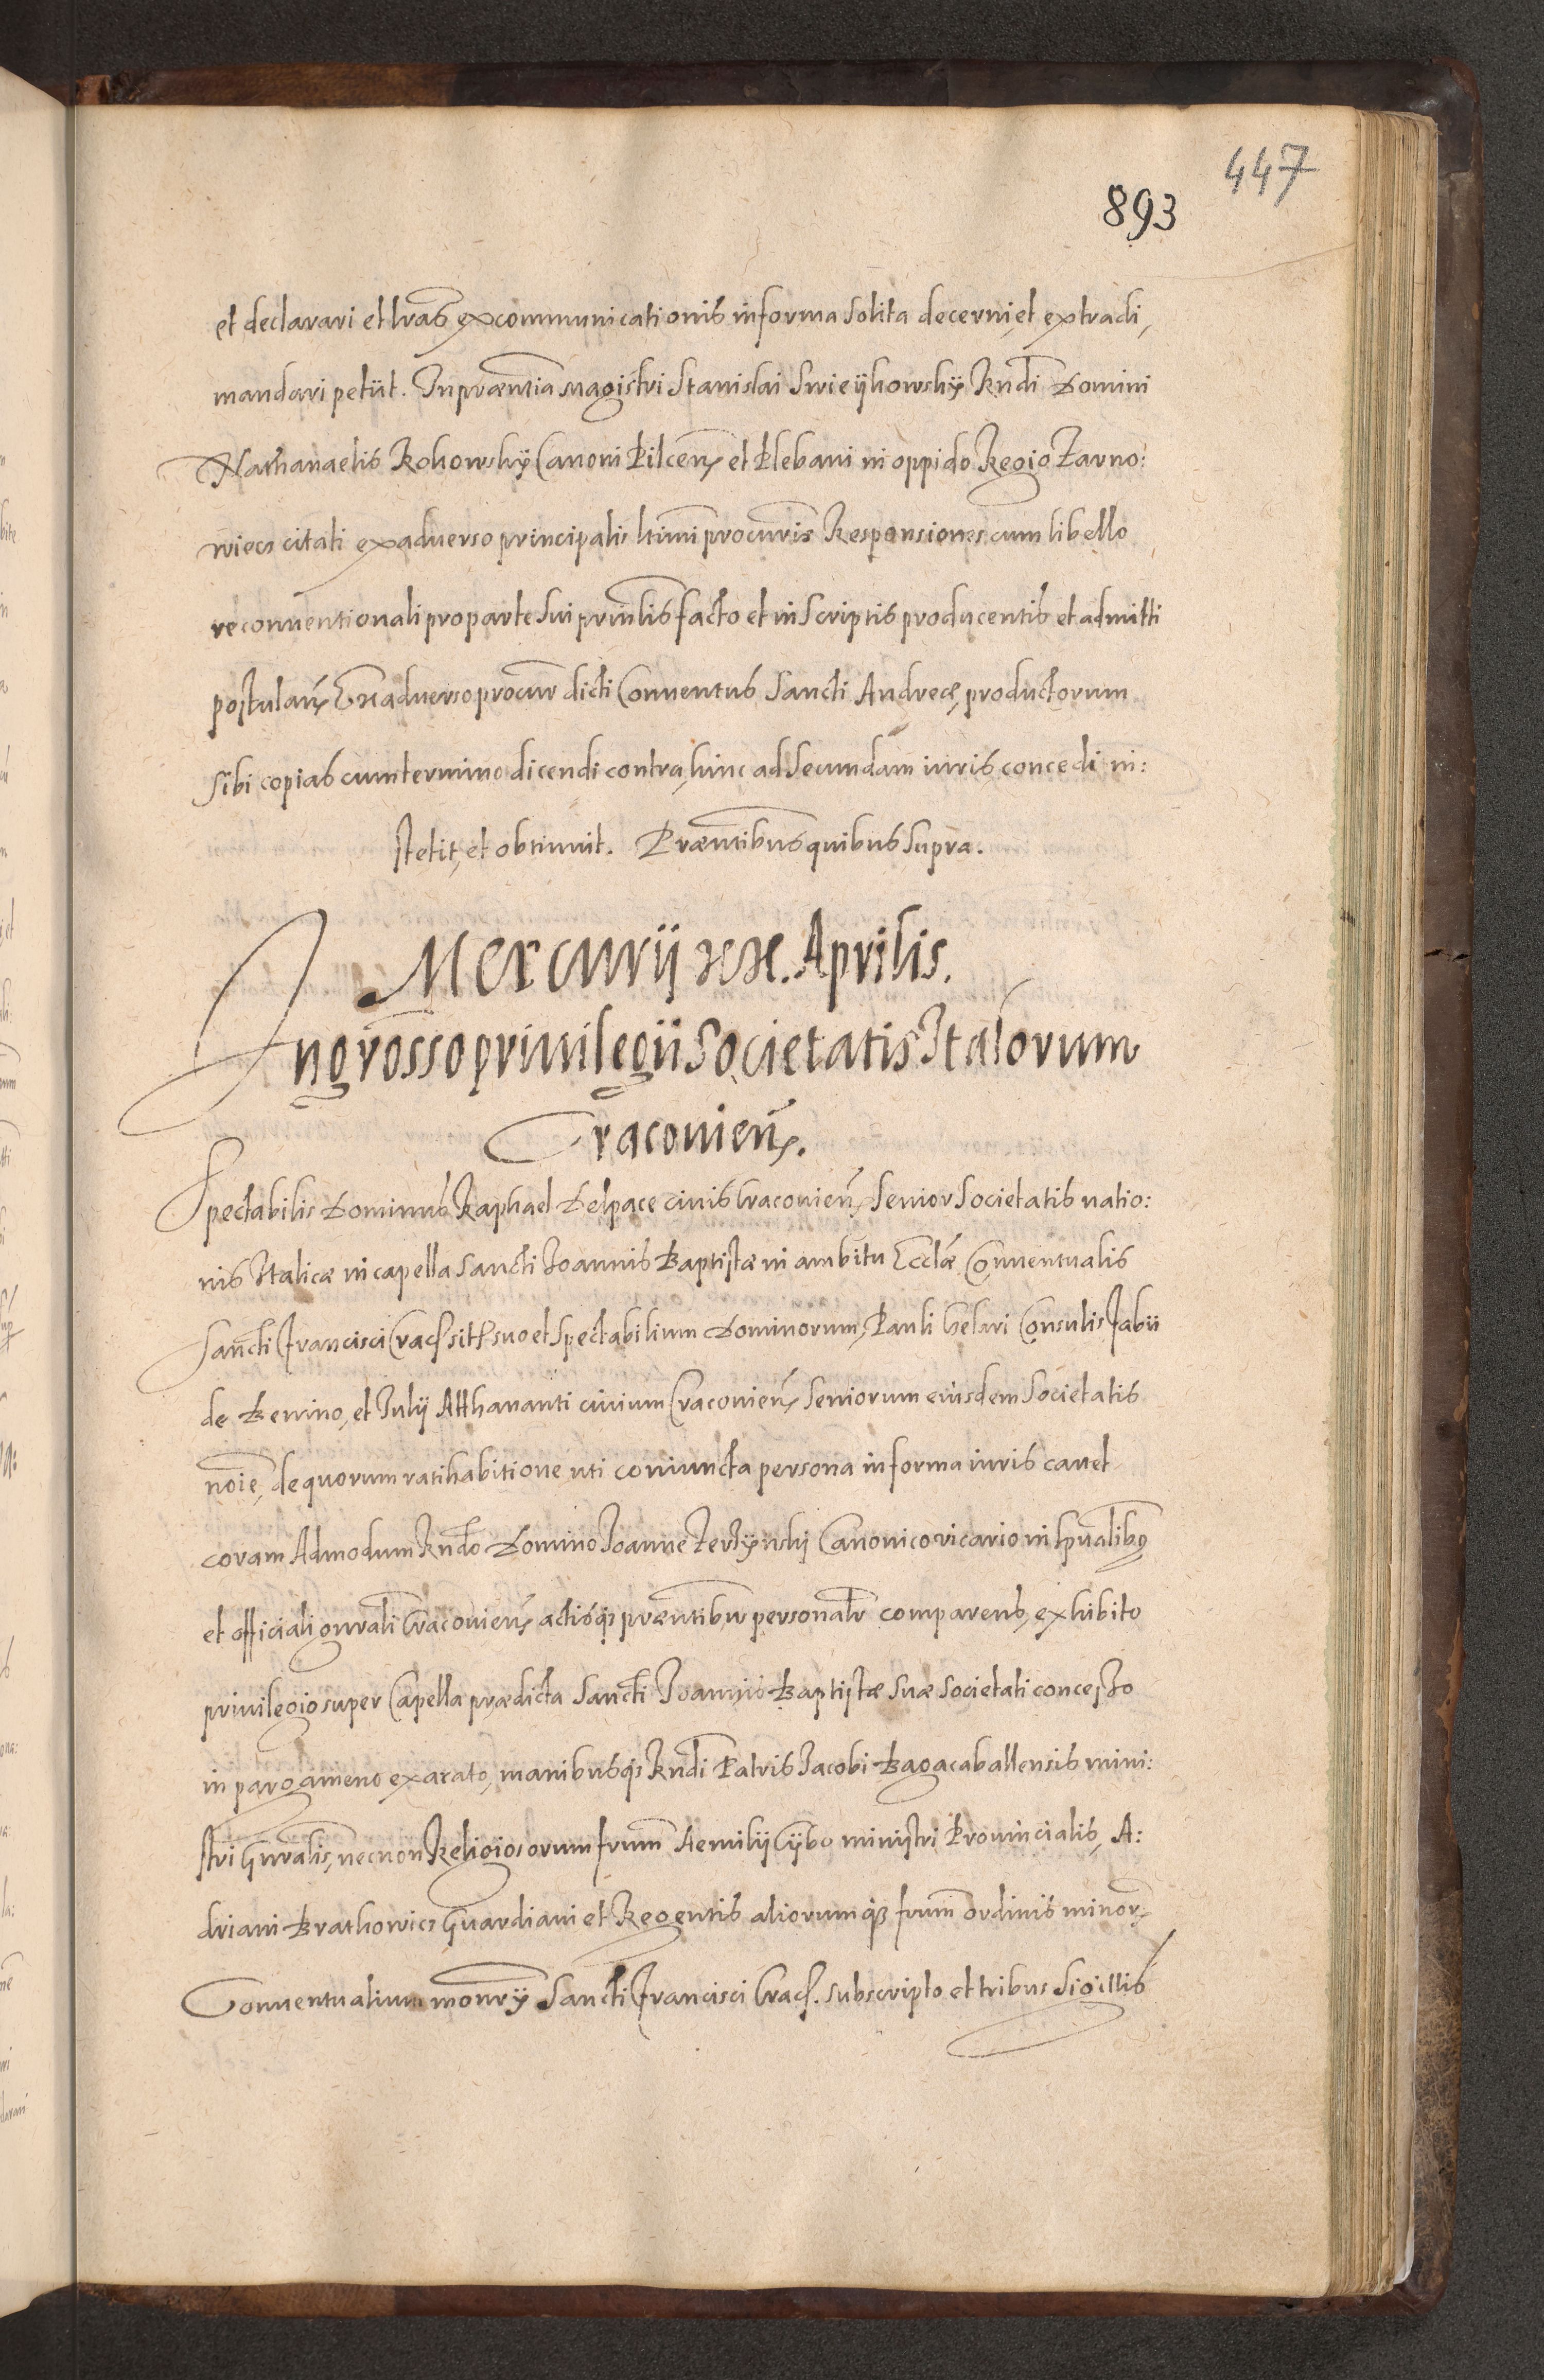 447
893
et declarari et lras excommunicationis in forma solita decerni, et extradi,
mandari petiit. In praentia magistri Stanislai Swieykowsky Rndi Domini
Nathanaelis Kokowsky Canoni Pilcen et Plebani in oppido Regio Zarno:
wiecz citati ex adverso principalis ltimi procuris Responsiones cum libello
reconuentionali pro parte sui prinlis facto et in Scriptis producentis et admitti
postulan Ex adverso procur dicti Conuentus Sancti Andreæ, productorum
sibi copias cum termino dicendi contra, hinc ad secundam iuris concedi in:
stetit, et obtinuit. Praentibus quibus supra.
Mercurii xx. Aprilis.
Ingrosso priuilegii Societatis Italorum
Cracouien.
Spectabilis Dominus Raphael Delpace ciuis Cracouien, Senior Societatis natio:
nis Italicæ in capella Sancti Joannis Baptistæ in ambitu Eccliæ Conuentualis
Sancti Francisci Crac sit suo et Spectabilium Dominorum, Pauli Helari Consulis Fabii
de Benino, et Julij Atthauanti ciuium Cracouien, Seniorum eiusdem Societatis
noie, de quorum ratihabitione uti coniuncta persona in forma iuris cauet
coram Admodum Rndo Domino Joanne Zerzynski Canonico vicario in spualibq
et officiali gnrali Cracouien, actisq praentibus personalr comparens, exhibito
priuilegio super Capella prædicta Sancti Joannis Baptistæ suæ Societati concesso
in pargameno exarato, manibusq Rndi Patris Jacobi Bagacaballensis mini:
stri Gnralis, necnon Religiosorum frum Aemilij Cybo ministri Prouincialis, A:
driani Brathowicz Guardiani et Regentis aliorumq frum ordinis minor
Conuentualium monrij Sancti Francisci Crac. subscripto et tribus Sigillis